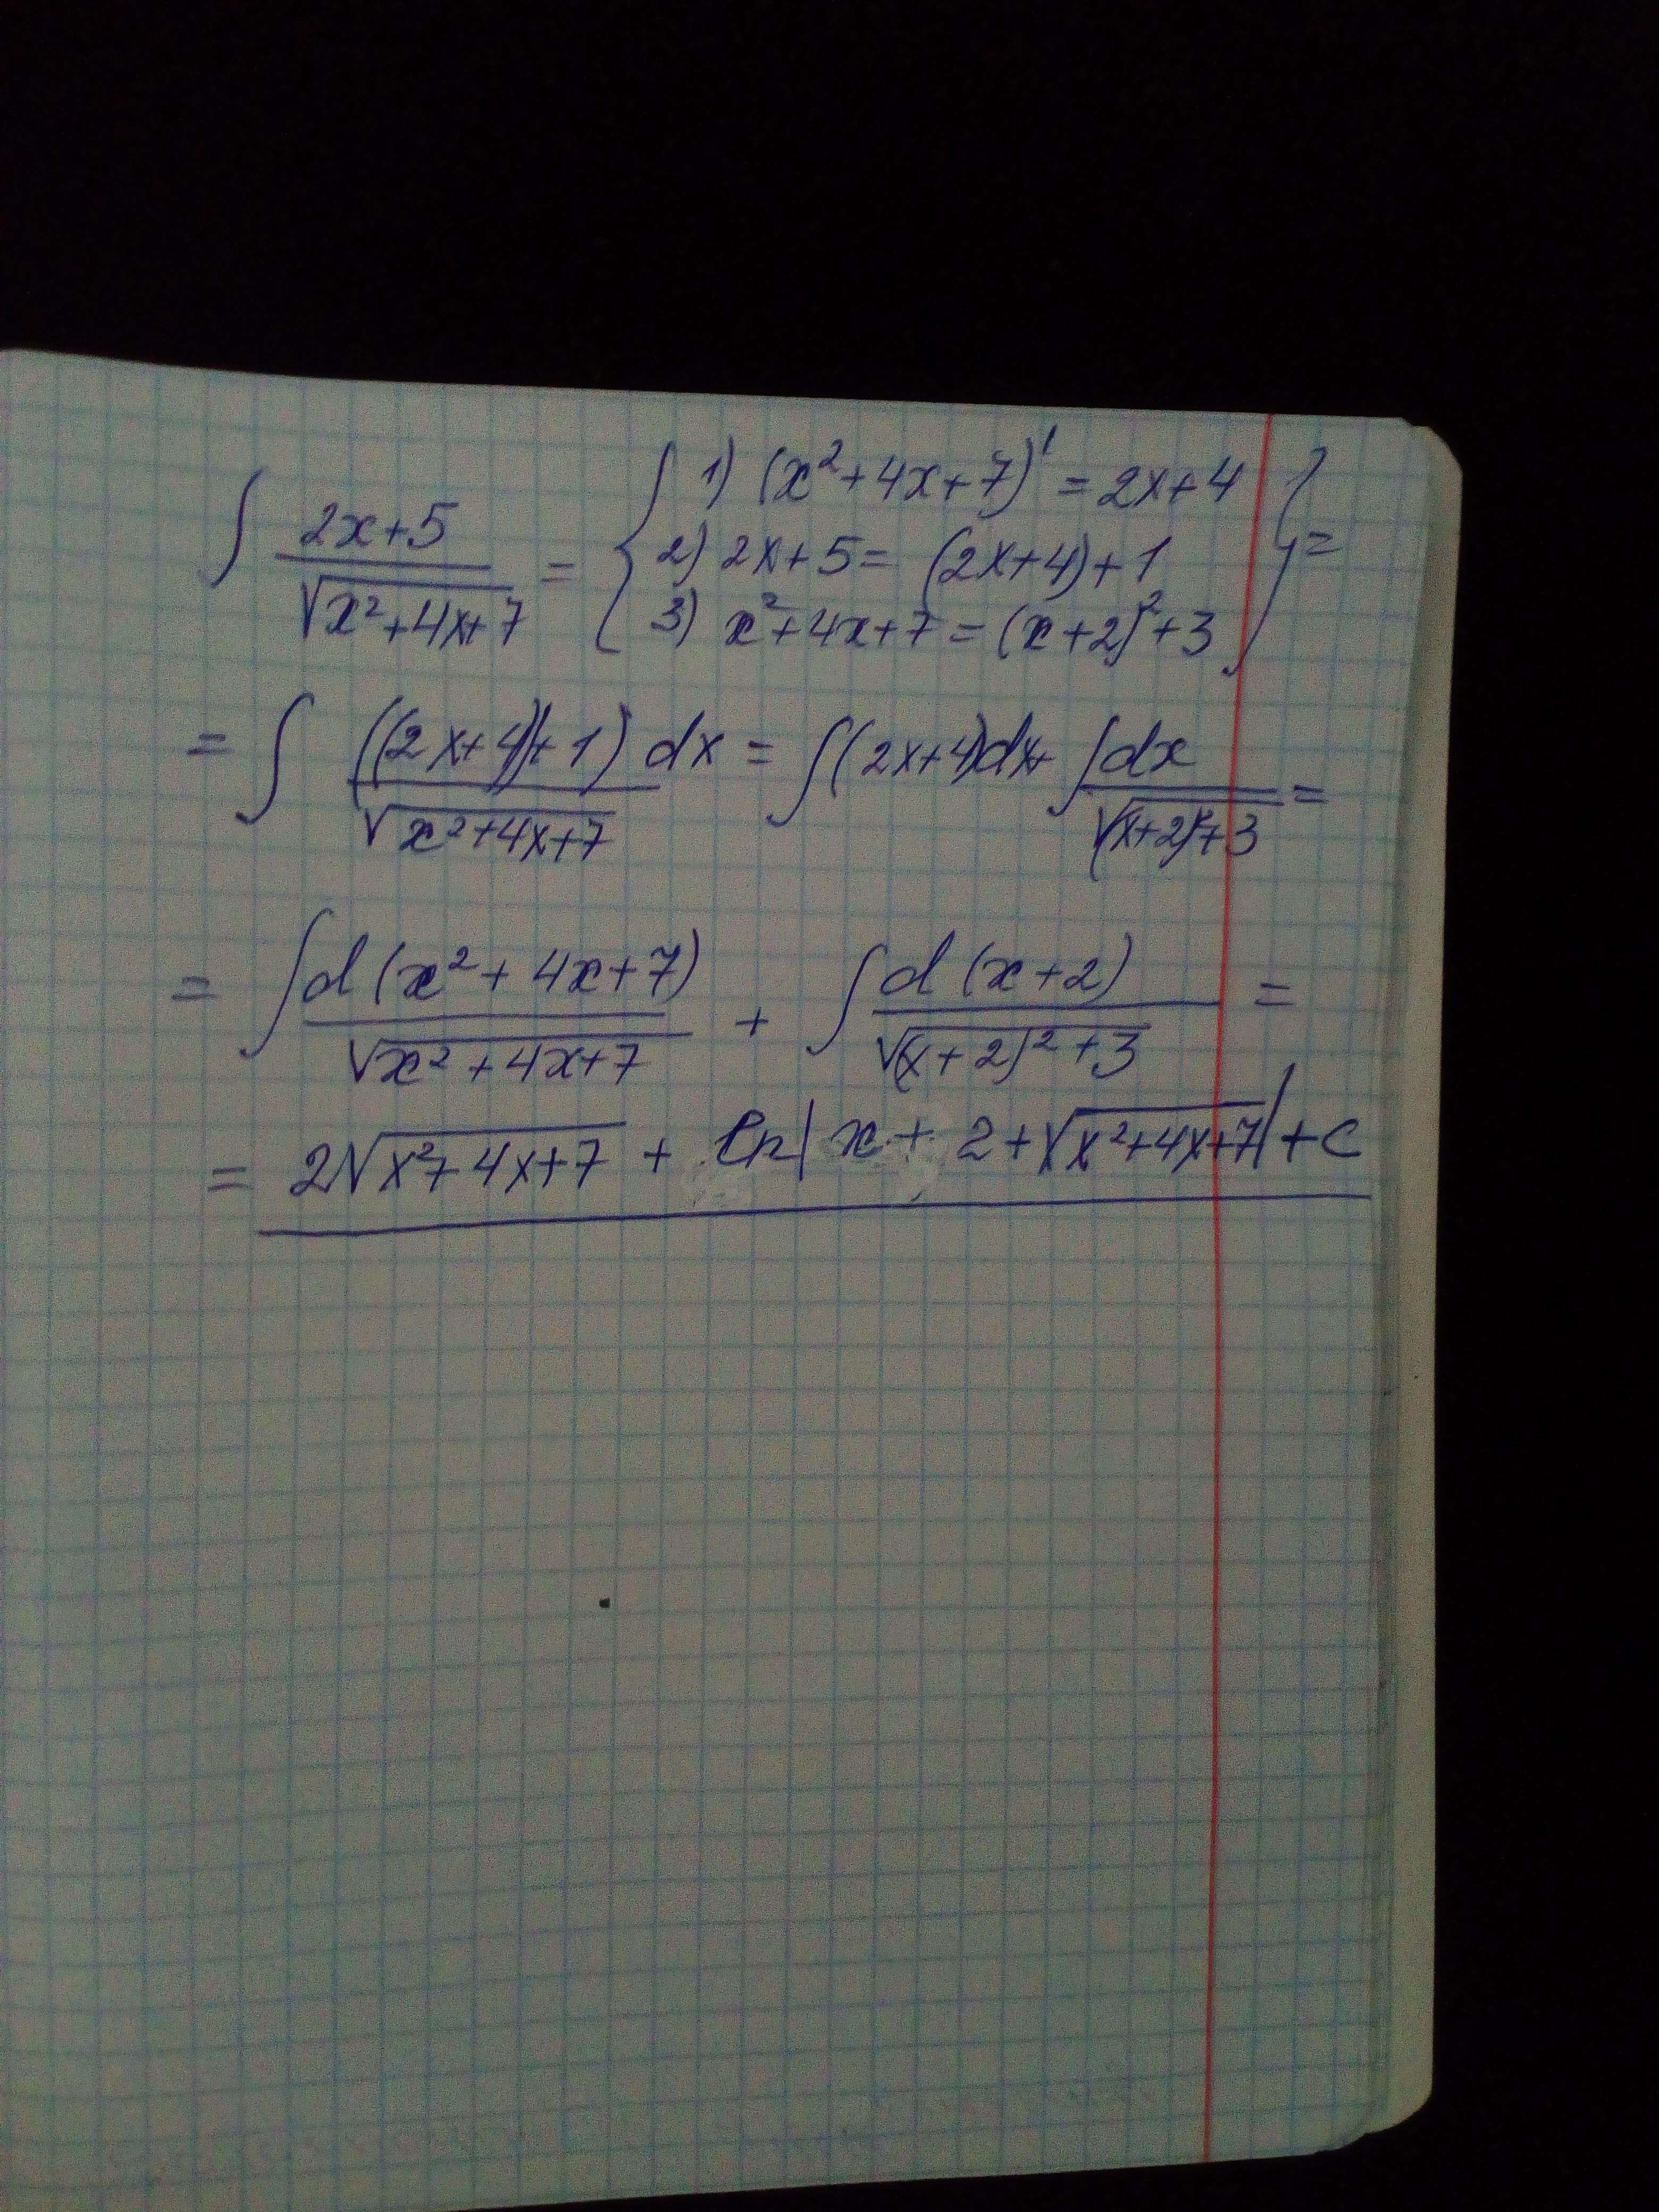 ∫ (2x+5)/√(x²+4x+7) = { 1) (x²+4x+7)' = 2x+4
2) 2x+5 = (2x+4)+1
3) x²+4x+7 = (x+2)²+3 } =
= ∫ ((2x+4)+1)/√(x²+4x+7) dx = ∫(2x+4)dx + ∫ dx/√((x+2)²+3) =
= ∫ d(x²+4x+7)/√(x²+4x+7) + ∫ d(x+2)/√((x+2)²+3) =
= 2√(x²+4x+7) + ln|x+2+√(x²+4x+7)| + C